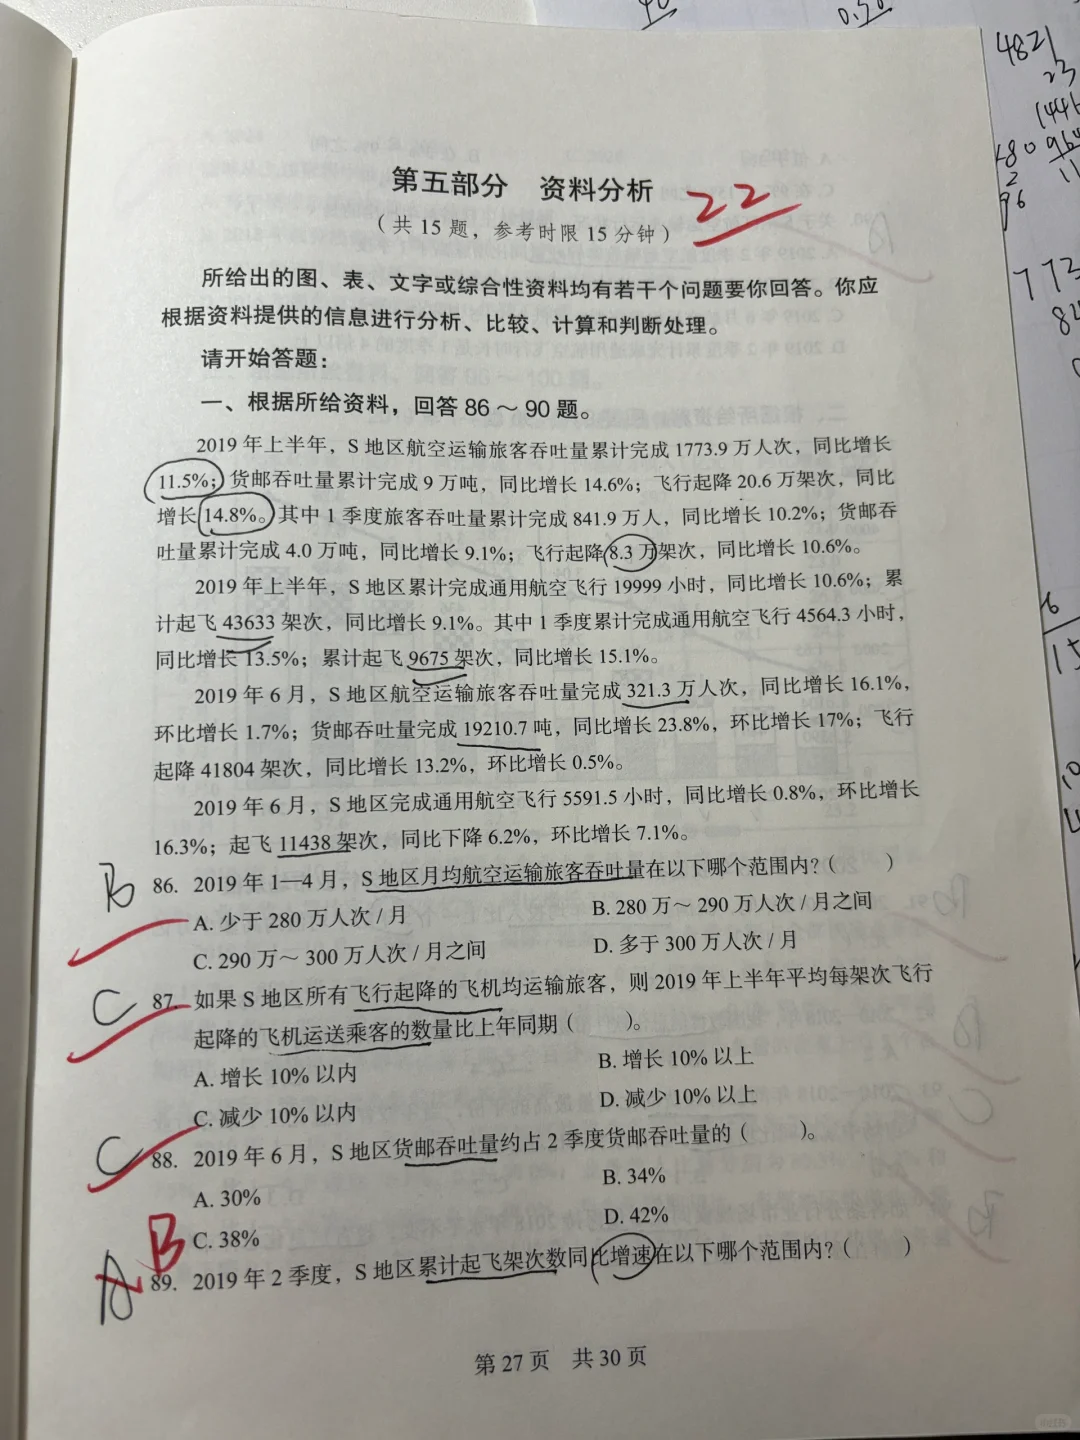 4821
23
第五部分 资料分析
22
(共 15 题，参考时限 15 分钟)
所给出的图、表、文字或综合性资料均有若干个问题要你回答。你应
根据资料提供的信息进行分析、比较、计算和判断处理。
请开始答题：
一、根据所给资料，回答 86～90 题。
2019 年上半年，S 地区航空运输旅客吞吐量累计完成 1773.9 万人次，同比增长
11.5%；货邮吞吐量累计完成 9 万吨，同比增长 14.6%；飞行起降 20.6 万架次，同比
增长 14.8%。其中 1 季度旅客吞吐量累计完成 841.9 万人，同比增长 10.2%；货邮吞
吐量累计完成 4.0 万吨，同比增长 9.1%；飞行起降 8.3 万架次，同比增长 10.6%。
2019 年上半年，S 地区累计完成通用航空飞行 19999 小时，同比增长 10.6%；累
计起飞 43633 架次，同比增长 9.1%。其中 1 季度累计完成通用航空飞行 4564.3 小时，
同比增长 13.5%；累计起飞 9675 架次，同比增长 15.1%。
2019 年 6 月，S 地区航空运输旅客吞吐量完成 321.3 万人次，同比增长 16.1%，
环比增长 1.7%；货邮吞吐量完成 19210.7 吨，同比增长 23.8%，环比增长 17%；飞行
起降 41804 架次，同比增长 13.2%，环比增长 0.5%。
2019 年 6 月，S 地区完成通用航空飞行 5591.5 小时，同比增长 0.8%，环比增长
16.3%；起飞 11438 架次，同比下降 6.2%，环比增长 7.1%。
B 86. 2019 年 1—4 月，S 地区月均航空运输旅客吞吐量在以下哪个范围内？( )
A. 少于 280 万人次 / 月 B. 280 万～ 290 万人次 / 月之间
C. 290 万～ 300 万人次 / 月之间 D. 多于 300 万人次 / 月
C 87. 如果 S 地区所有飞行起降的飞机均运输旅客，则 2019 年上半年平均每架次飞行
起降的飞机运送乘客的数量比上年同期 ( )。
A. 增长 10% 以内 B. 增长 10% 以上
C. 减少 10% 以内 D. 减少 10% 以上
C 88. 2019 年 6 月，S 地区货邮吞吐量约占 2 季度货邮吞吐量的 ( )。
A. 30% B. 34%
C. 38% D. 42%
A B 89. 2019 年 2 季度，S 地区累计起飞架次数同比增速在以下哪个范围内？( )
第 27 页 共 30 页